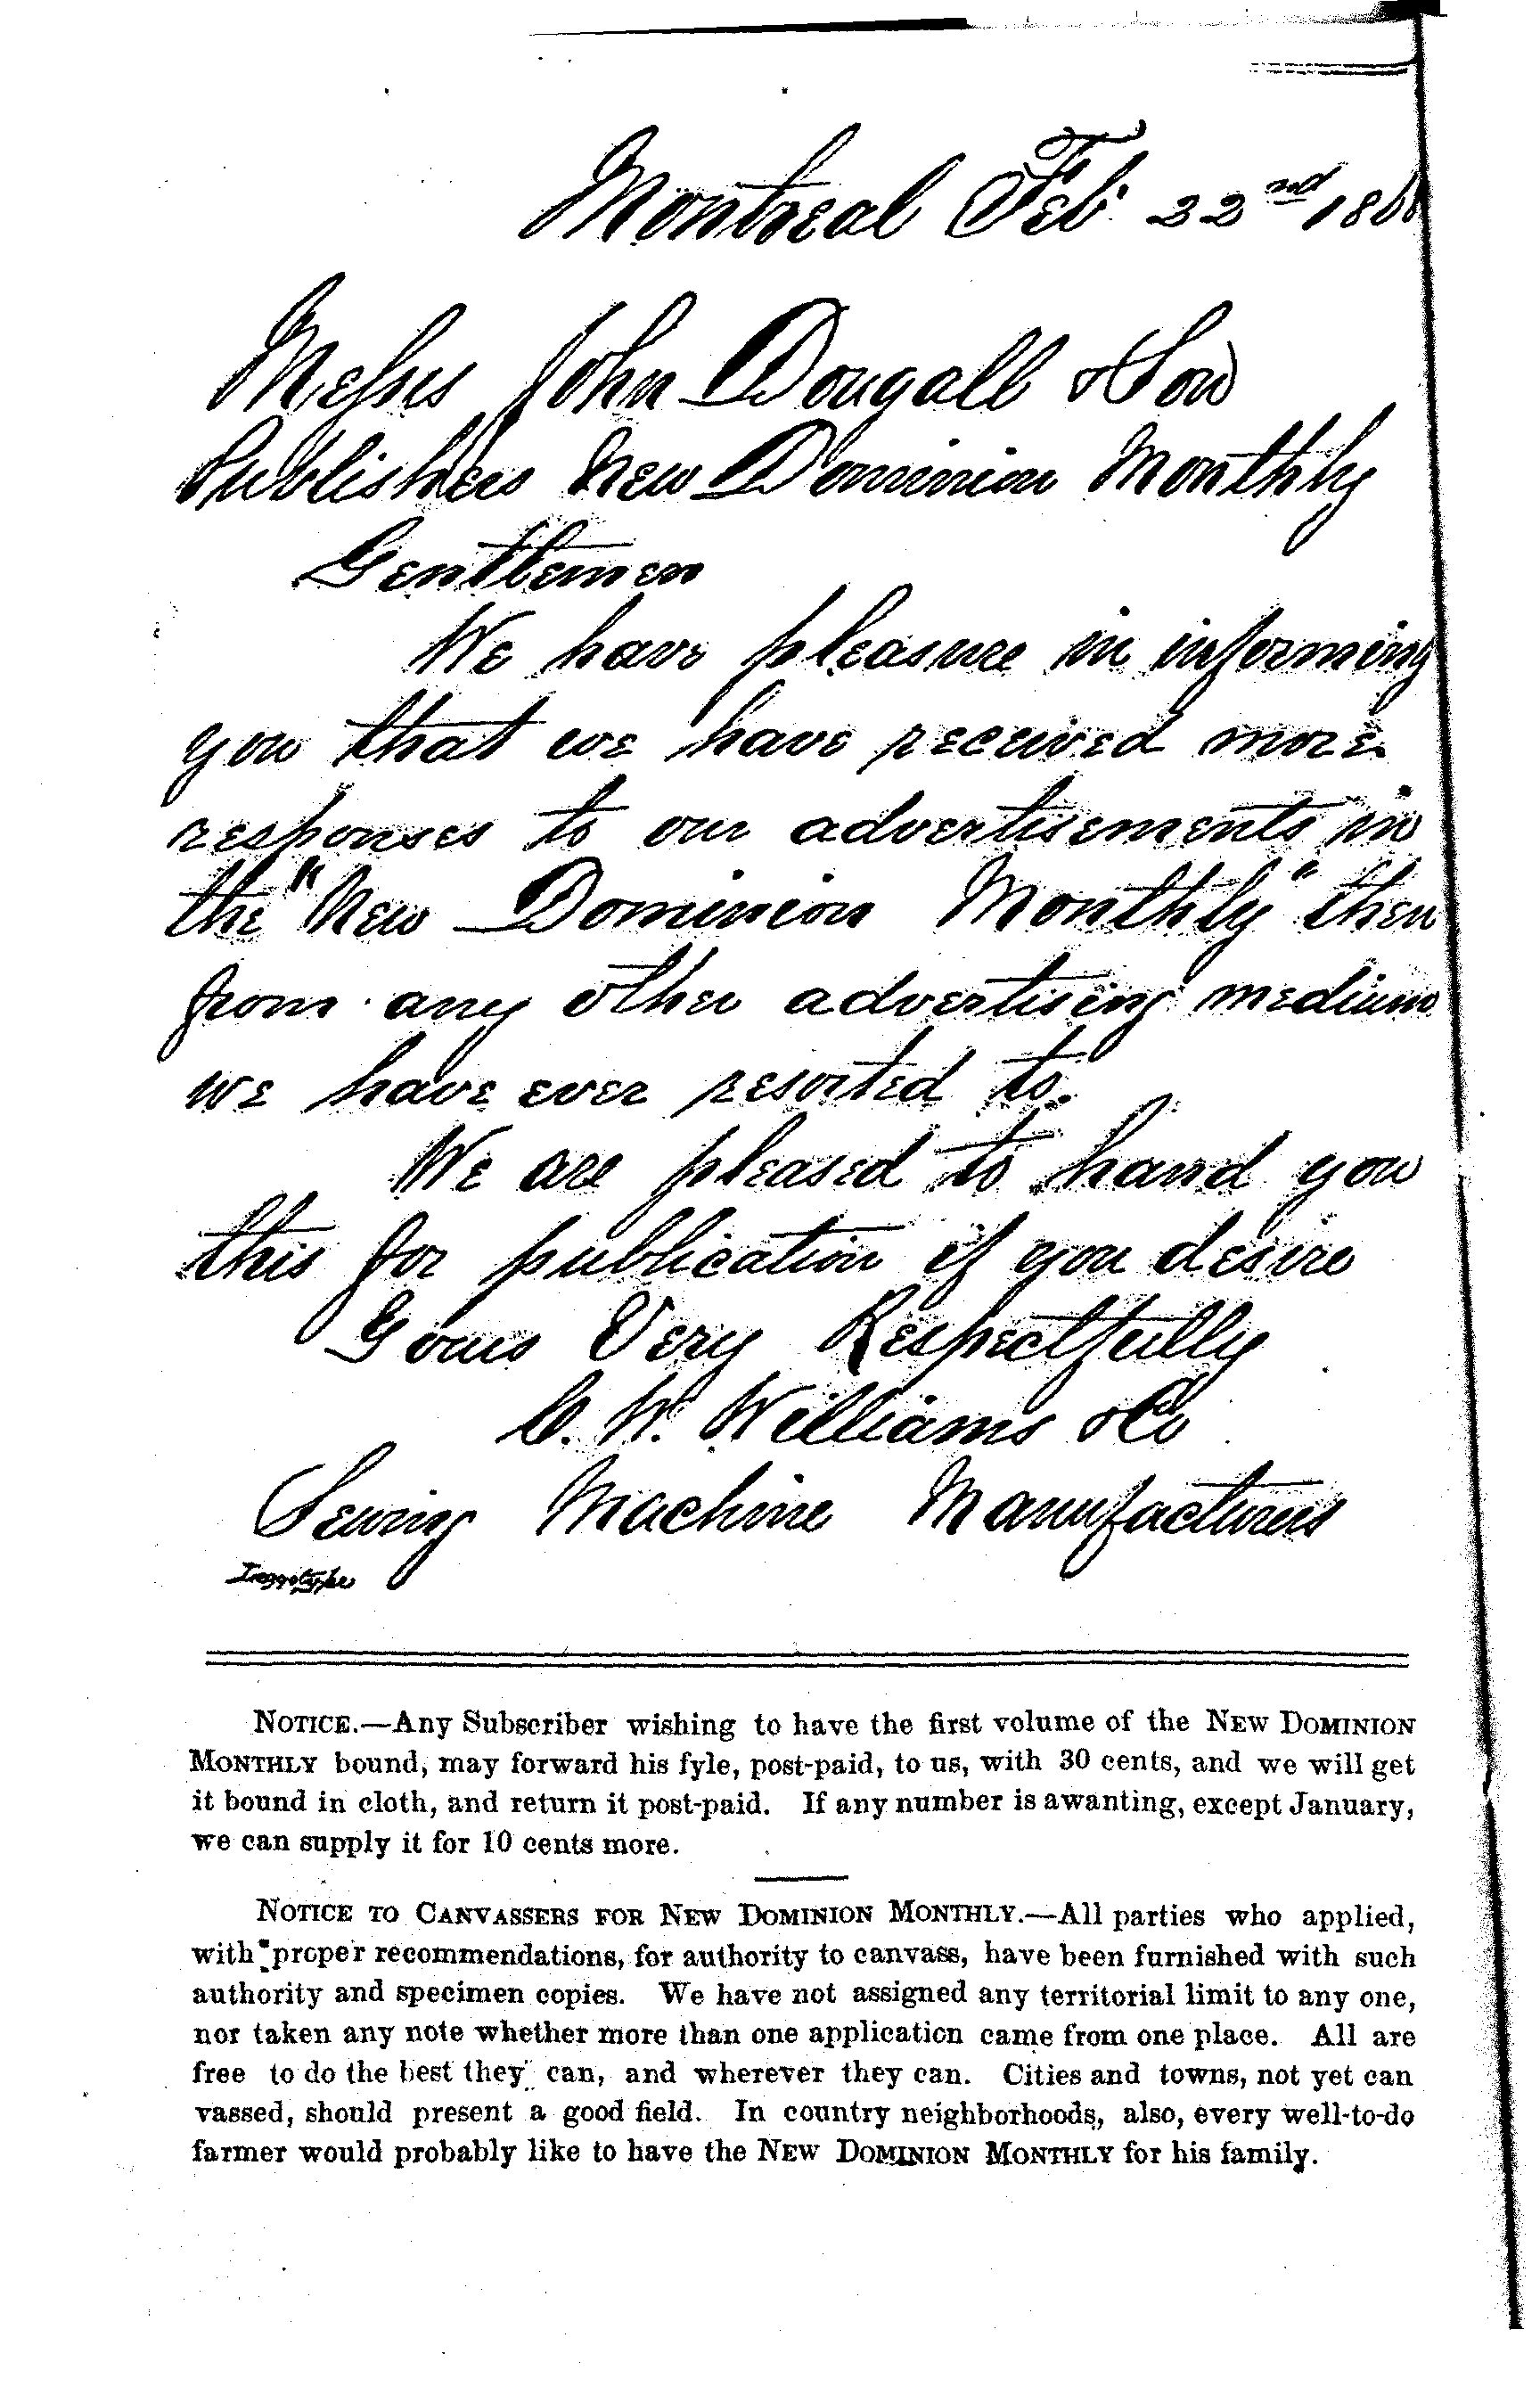 Montreal Feb 22nd 1868
Messrs John Dougall & Son
Publishers New Dominion Monthly
Gentlemen
We have pleasure in informing
you that we have received more
responses to our advertisements in
the "New Dominion Monthly" then
from any other advertising medium
we have ever resorted to.
We are pleased to hand you
this for publication if you desire
Yours Very Respectfully
C. W. Williams & Co
Sewing Machine Manufacturers
Leggotype
NOTICE.—Any Subscriber wishing to have the first volume of the NEW DOMINION
MONTHLY bound, may forward his fyle, post-paid, to us, with 30 cents, and we will get
it bound in cloth, and return it post-paid. If any number is awanting, except January,
we can supply it for 10 cents more.
NOTICE TO CANVASSERS FOR NEW DOMINION MONTHLY.—All parties who applied,
with proper recommendations, for authority to canvass, have been furnished with such
authority and specimen copies. We have not assigned any territorial limit to any one,
nor taken any note whether more than one application came from one place. All are
free to do the best they can, and wherever they can. Cities and towns, not yet can
vassed, should present a good field. In country neighborhoods, also, every well-to-do
farmer would probably like to have the NEW DOMINION MONTHLY for his family.